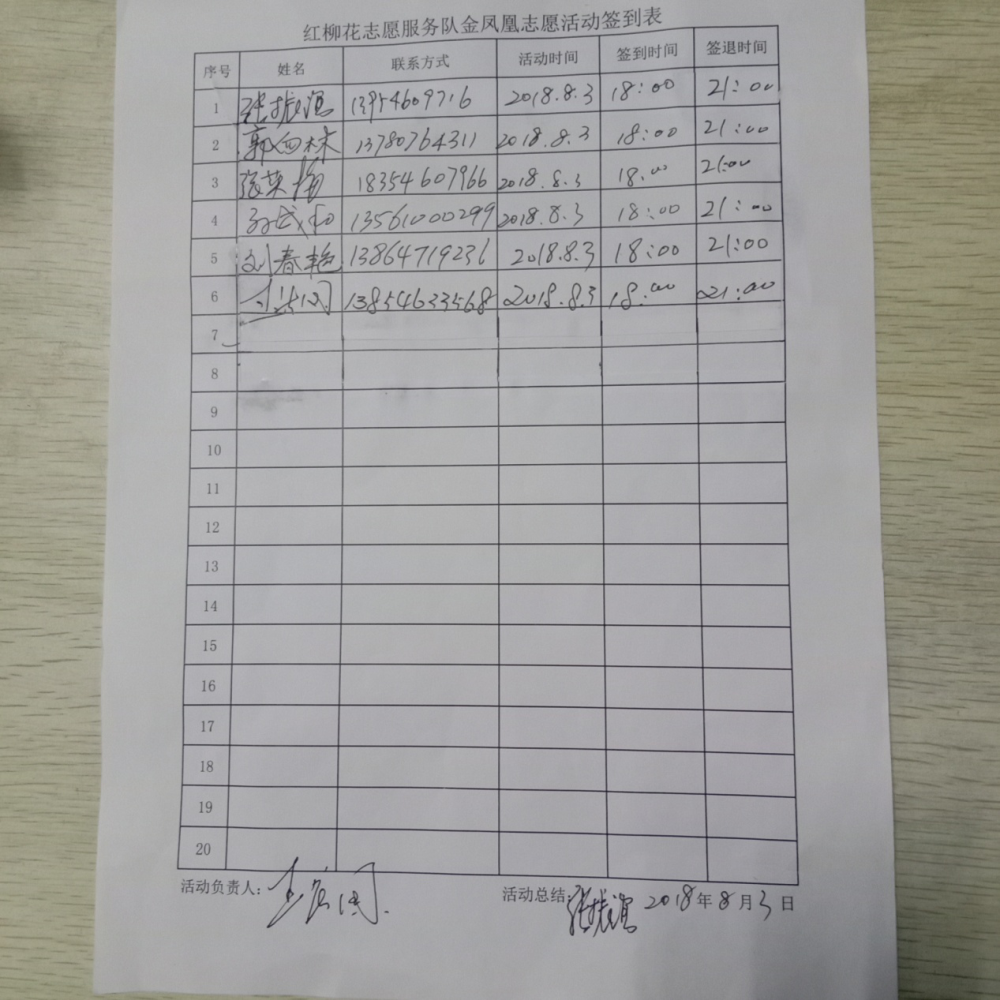 红柳花志愿服务队金凤凰志愿活动签到表
序号 姓名 联系方式 活动时间 签到时间 签退时间
1 张振滨 13954609716 2018.8.3 18:00 21:00
2 郭四林 13780764311 2018.8.3 18:00 21:00
3 张英梅 18354607966 2018.8.3 18:00 21:00
4 13561000299 2018.8.3 18:00 21:00
5 刘春艳 13864719236 2018.8.3 18:00 21:00
6 13854633568 2018.8.3 18:00 21:00
7
8
9
10
11
12
13
14
15
16
17
18
19
20
活动负责人: 活动总结: 张振滨 2018年8月3日